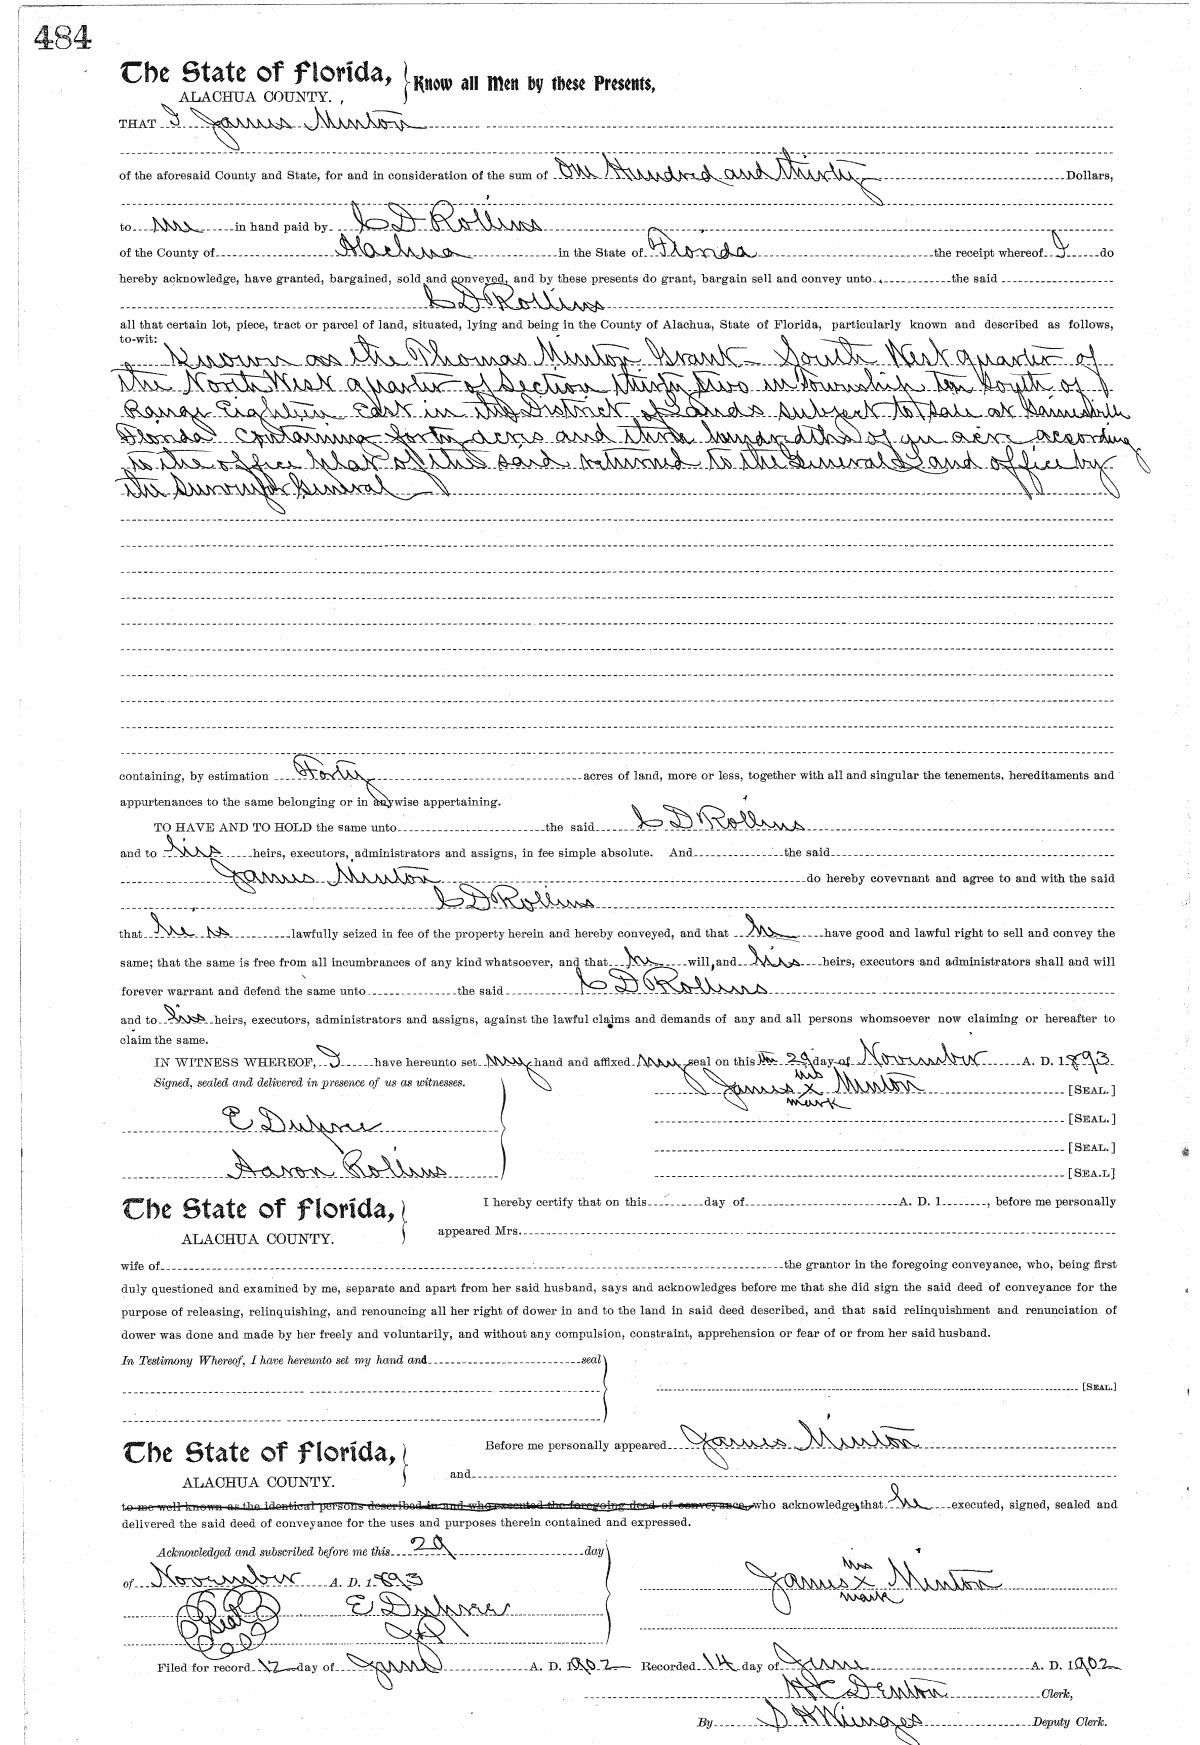 484
The State of Florida, Know all Men by these Presents,
ALACHUA COUNTY.
THAT I James Minton
of the aforesaid County and State, for and in consideration of the sum of One Hundred and thirty Dollars,
to me in hand paid by C D Rollins
of the County of Alachua in the State of Florida the receipt whereof I do
hereby acknowledge, have granted, bargained, sold and conveyed, and by these presents do grant, bargain sell and convey unto the said
C D Rollins
all that certain lot, piece, tract or parcel of land, situated, lying and being in the County of Alachua, State of Florida, particularly known and described as follows,
to-wit:
Known as the Thomas Minton Grant - South West quarter of
the North West quarter of Section thirty two in township ten South of
Range Eighteen East in the District of Lands subject to sale at Gainesville
Florida containing forty acres and three hundredths of an acre according
to the office plat of the said returned to the General Land office by
the Surveyor General
containing, by estimation Forty acres of land, more or less, together with all and singular the tenements, hereditaments and
appurtenances to the same belonging or in anywise appertaining.
TO HAVE AND TO HOLD the same unto the said C D Rollins
and to his heirs, executors, administrators and assigns, in fee simple absolute. And the said
James Minton do hereby covevnant and agree to and with the said
C D Rollins
that he is lawfully seized in fee of the property herein and hereby conveyed, and that he have good and lawful right to sell and convey the
same; that the same is free from all incumbrances of any kind whatsoever, and that he will, and his heirs, executors and administrators shall and will
forever warrant and defend the same unto the said C D Rollins
and to his heirs, executors, administrators and assigns, against the lawful claims and demands of any and all persons whomsoever now claiming or hereafter to
claim the same.
IN WITNESS WHEREOF, I have hereunto set my hand and affixed my seal on this the 29 day of November A. D. 1893
Signed, sealed and delivered in presence of us as witnesses.
his
James x Minton [SEAL.]
mark
E Dupree [SEAL.]
[SEAL.]
Aaron Rollins [SEA.L]
The State of Florida, I hereby certify that on this day of A. D. 1 , before me personally
ALACHUA COUNTY. appeared Mrs.
wife of the grantor in the foregoing conveyance, who, being first
duly questioned and examined by me, separate and apart from her said husband, says and acknowledges before me that she did sign the said deed of conveyance for the
purpose of releasing, relinquishing, and renouncing all her right of dower in and to the land in said deed described, and that said relinquishment and renunciation of
dower was done and made by her freely and voluntarily, and without any compulsion, constraint, apprehension or fear of or from her said husband.
In Testimony Whereof, I have hereunto set my hand and seal
[SEAL.]
The State of Florida, Before me personally appeared James Minton
ALACHUA COUNTY. and
to me well known as the identical persons described in and who executed the foregoing deed of conveyance, who acknowledges that he executed, signed, sealed and
delivered the said deed of conveyance for the uses and purposes therein contained and expressed.
Acknowledged and subscribed before me this 29 day
of November A. D. 1893
his
James x Minton
mark
Seal E Dupree
JP
Filed for record 12 day of June A. D. 1902 Recorded 14 day of June A. D. 1902
H C Denton Clerk,
By S H Wienges Deputy Clerk.